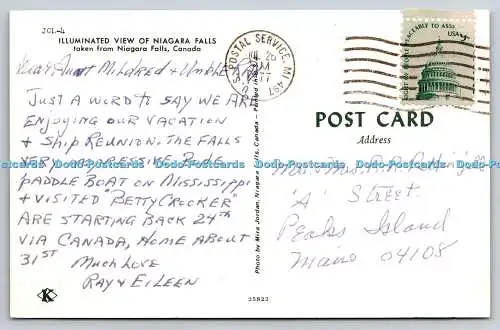 JCL-4
ILLUMINATED VIEW OF NIAGARA FALLS
taken from Niagara Falls, Canada
Dear Aunt Mildred + Unkle
JUST A WORD TO SAY WE ARE
ENJOYING OUR VACATION
+ SHIP REUNION. THE FALLS
VERY IMPRESSIVE RODE
PADDLE BOAT ON MISSISSIPPI
+ VISITED "BETTY CROCKER"
ARE STARTING BACK 29th
VIA CANADA, HOME ABOUT
31ST MUCH LOVE
RAY + EILEEN
K
Photo by Mira Jordan, Niagara Falls, Canada - Printed in
25822
U.S. POSTAL SERVICE, MI 491
PM
PEACEABLY TO ASSEMBLE
USA
POST CARD
Address
Mr. Mrs.
'A' Street
Peaks Island
Maine 04108
Dodo-Postcards Dodo-Postcards Dodo-Postcards Dodo-Postcards Dodo-Postcards